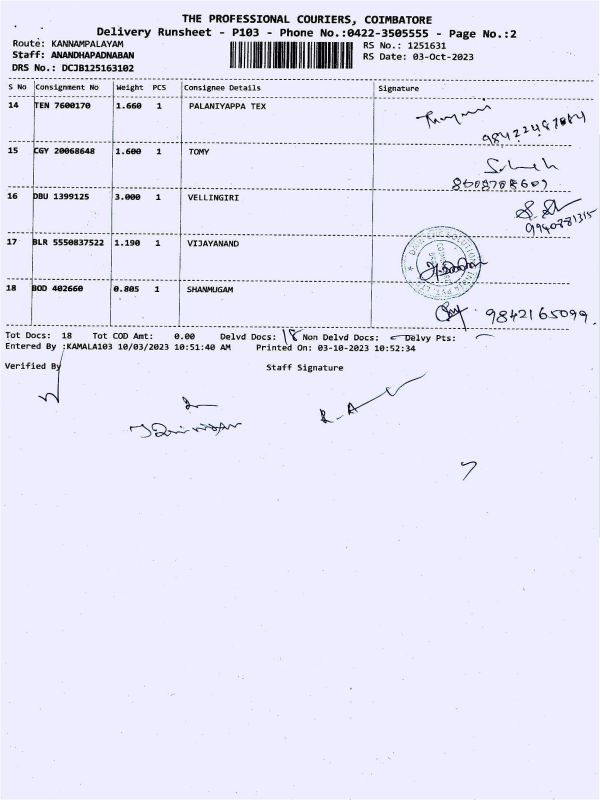 THE PROFESSIONAL COURIERS, COIMBATORE
Delivery Runsheet - P103 - Phone No.:0422-3505555 - Page No.:2
Route: KANNAMPALAYAM RS No.: 1251631
Staff: ANANDHAPADNABAN RS Date: 03-Oct-2023
DRS No.: DCJB125163102
S No Consignment No Weight PCS Consignee Details Signature
14 TEN 7600170 1.660 1 PALANIYAPPA TEX
15 CGY 20068648 1.600 1 TOMY
16 DBU 1399125 3.000 1 VELLINGIRI
9940781315
17 BLR 5550837522 1.190 1 VIJAYANAND
18 BOD 402660 0.805 1 SHANMUGAM
9842165099.
Tot Docs: 18 Tot COD Amt: 0.00 Delvd Docs: 18 Non Delvd Docs: Delvy Pts:
Entered By :KAMALA103 10/03/2023 10:51:40 AM Printed On: 03-10-2023 10:52:34
Verified By Staff Signature